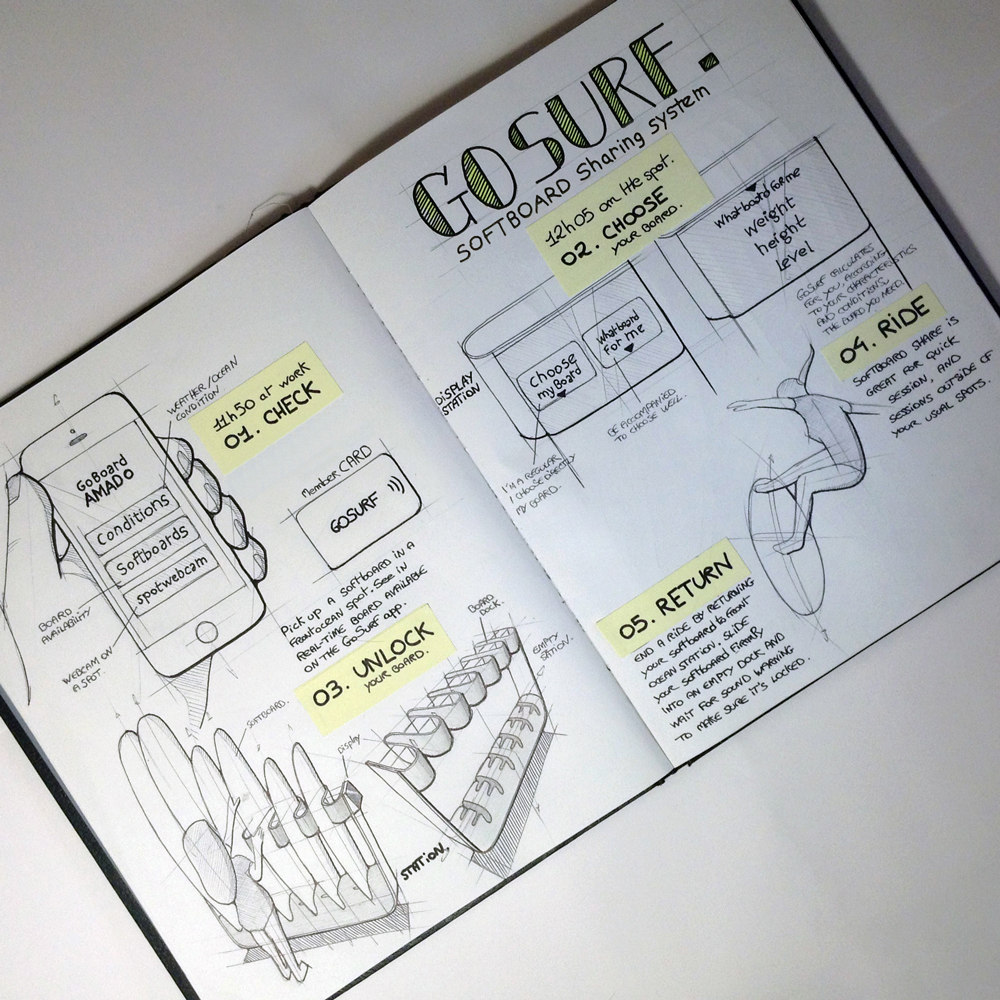 GOSURF.
SOFTBOARD Sharing system
WEATHER/OCEAN
CONDITION
11h50 at work
01. CHECK
GoBoard
AMADO
Conditions
Softboards
spotwebcam
BOARD
AVAILABILITY
WEBCAM ON
A SPOT.
Member CARD
GOSURF
Pick up a softboard in a
front ocean spot. See in
real-time board available
on the GoSurf app.
03. UNLOCK
YOUR BOARD.
SOFTBOARD.
Display
BOARD
DOCK.
EMPTY
STATION.
STATION.
12h05 on the spot.
02. CHOOSE
YOUR BOARD.
What board for me
Weight
height
Level
GOSURF CALCULATES
FOR YOU, ACCORDING
TO YOUR CHARACTERISTICS
AND CONDITIONS,
THE BOARD YOU NEED.
DISPLAY
STATION
Choose
my Board
What board
for me
I'M A REGULAR
I CHOOSE DIRECTLY
MY BOARD.
BE ACCOMPANIED
TO CHOOSE WELL.
04. RIDE
SOFTBOARD SHARE IS
GREAT FOR QUICK
SESSION, AND
SESSIONS OUTSIDE OF
YOUR USUAL SPOTS.
05. RETURN
END A RIDE BY RETURNING
YOUR SOFTBOARD TO FRONT
OCEAN STATION. SLIDE
YOUR SOFTBOARD FIRMLY
INTO AN EMPTY DOCK AND
WAIT FOR SOUND WARNING
TO MAKE SURE IT'S LOCKED.